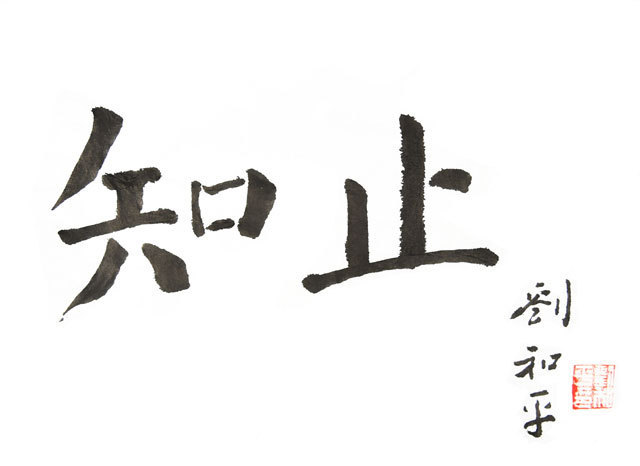 知止
劉和平